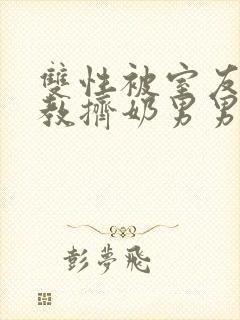 雙性被室友
教擠奶男男
彭夢飛